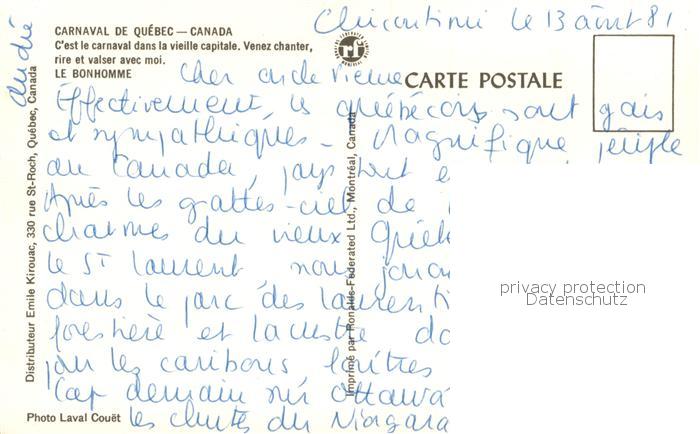 Chicoutimi le 13 août 81.
CARNAVAL DE QUÉBEC — CANADA
C'est le carnaval dans la vieille capitale. Venez chanter,
rire et valser avec moi.
LE BONHOMME
CARTE POSTALE
Cher oncle
Effectivement, les québécois sont gais
et sympathiques - Magnifique périple
au Canada, pays tout
Après les grattes-ciel de
charmes du vieux Québ
le St Laurent nous
dans le parc des laurenti
forestière et lacustre
par les caribous loutres
Cap demain sur Ottawa
les chutes du Niagara
André
Distributeur Emile Kirouac, 330 rue St-Roch, Québec, Canada
Imprimé par Ronalds-Federated Ltd., Montréal, Canada
Photo Laval Couët
privacy protection
Datenschutz